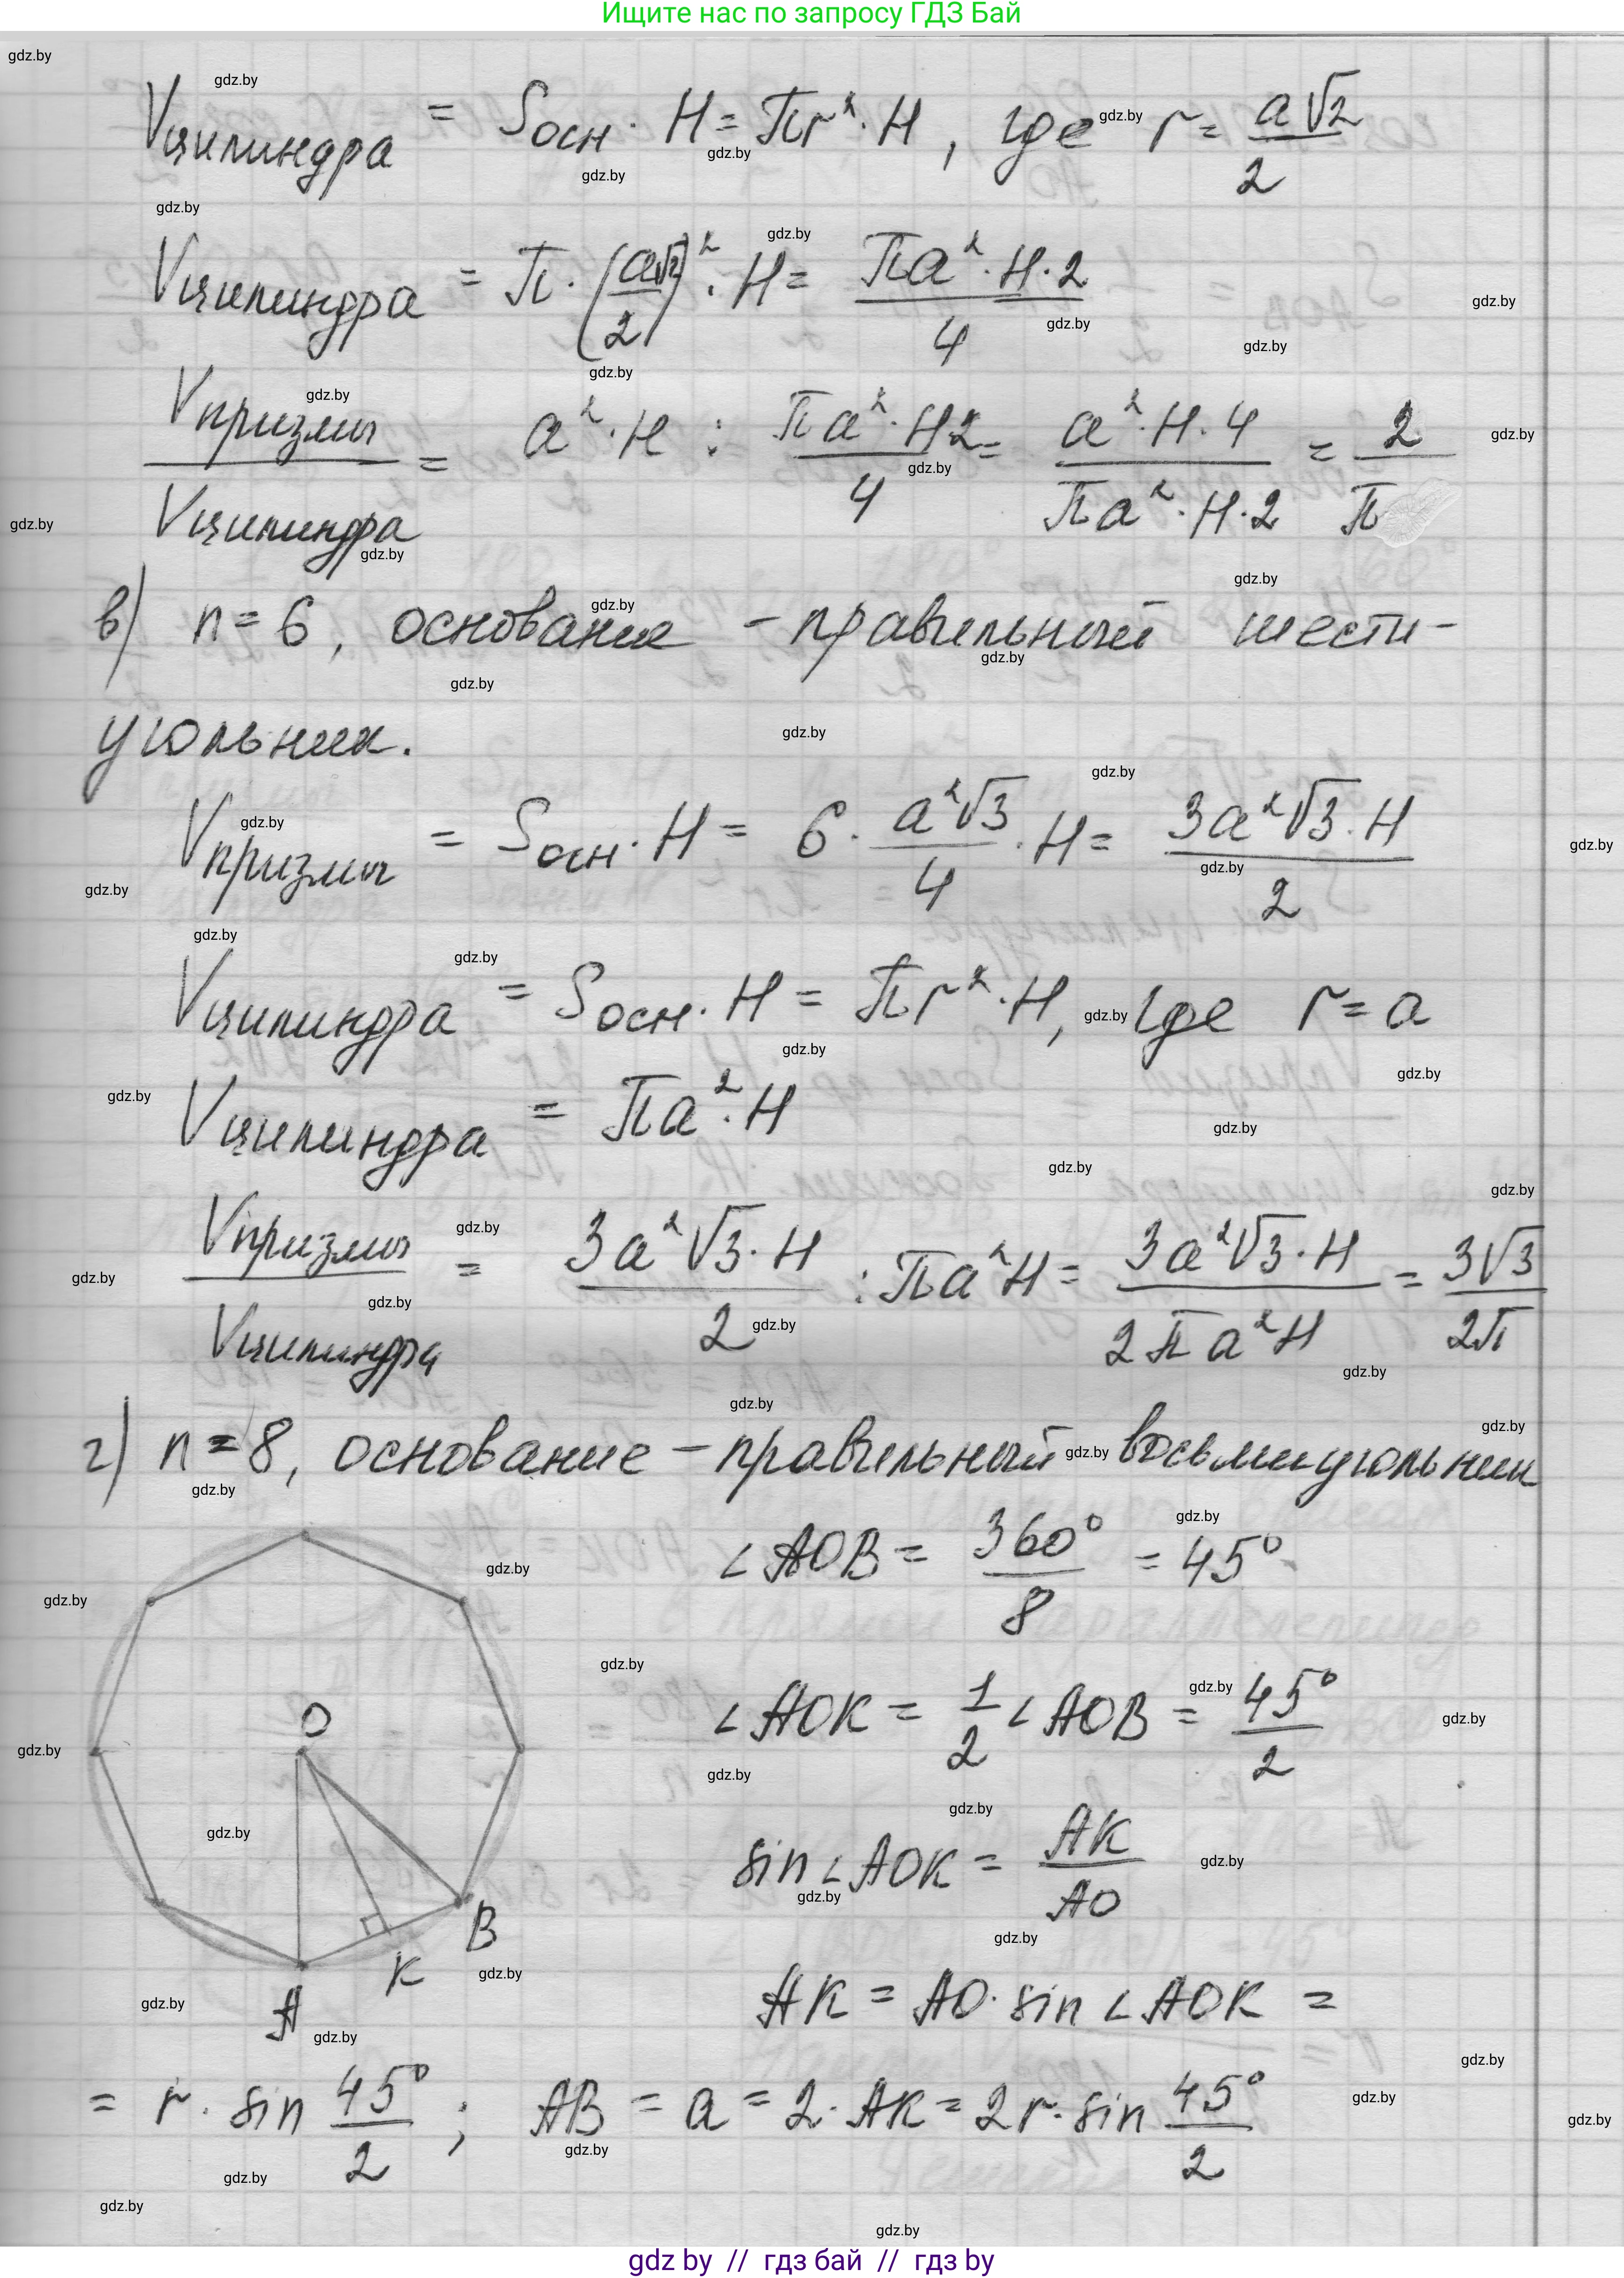 Ищите нас по запросу ГДЗ Бай
Vцилиндра = Sосн · H = πr² · H, где r = a√2/2
Vцилиндра = π · (a√2/2)² · H = πa² · H · 2/4
Vпризмы/Vцилиндра = a² · H : πa² · H2/4 = a² · H · 4/πa² · H · 2 = 2/π
в) n = 6, основание – правильный шести-
угольник.
Vпризмы = Sосн · H = 6 · a²√3/4 · H = 3a²√3 · H/2
Vцилиндра = Sосн · H = πr² · H, где r = a
Vцилиндра = πa² · H
Vпризмы/Vцилиндра = 3a²√3 · H/2 : πa²H = 3a²√3 · H/2πa²H = 3√3/2π
г) n = 8, основание – правильный восьмиугольник
∠AOB = 360°/8 = 45°
∠AOK = 1/2 ∠AOB = 45°/2
sin∠AOK = AK/AO
O
B
K
A
AK = AO · sin∠AOK =
= r · sin 45°/2 ; AB = a = 2 · AK = 2r · sin 45°/2
gdz by // гдз бай // гдз by